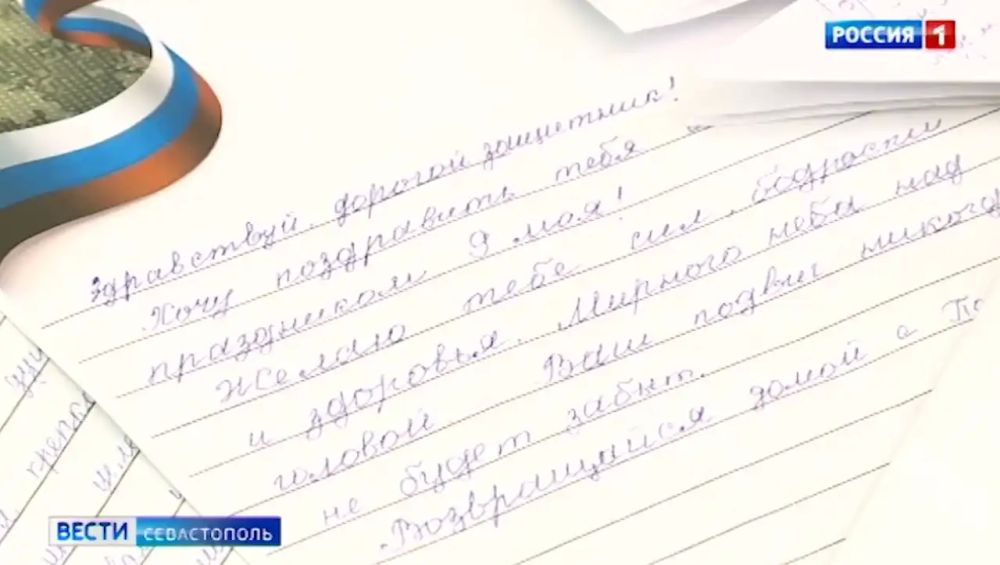 РОССИЯ 1
Здравствуй, дорогой защитник!
Хочу поздравить тебя с
праздником 9 мая!
Желаю тебе сил, бодрости
и здоровья. Мирного неба над
головой Ваш подвиг никогда
не будет забыт.
Возвращайся домой с По
ВЕСТИ СЕВАСТОПОЛЬ